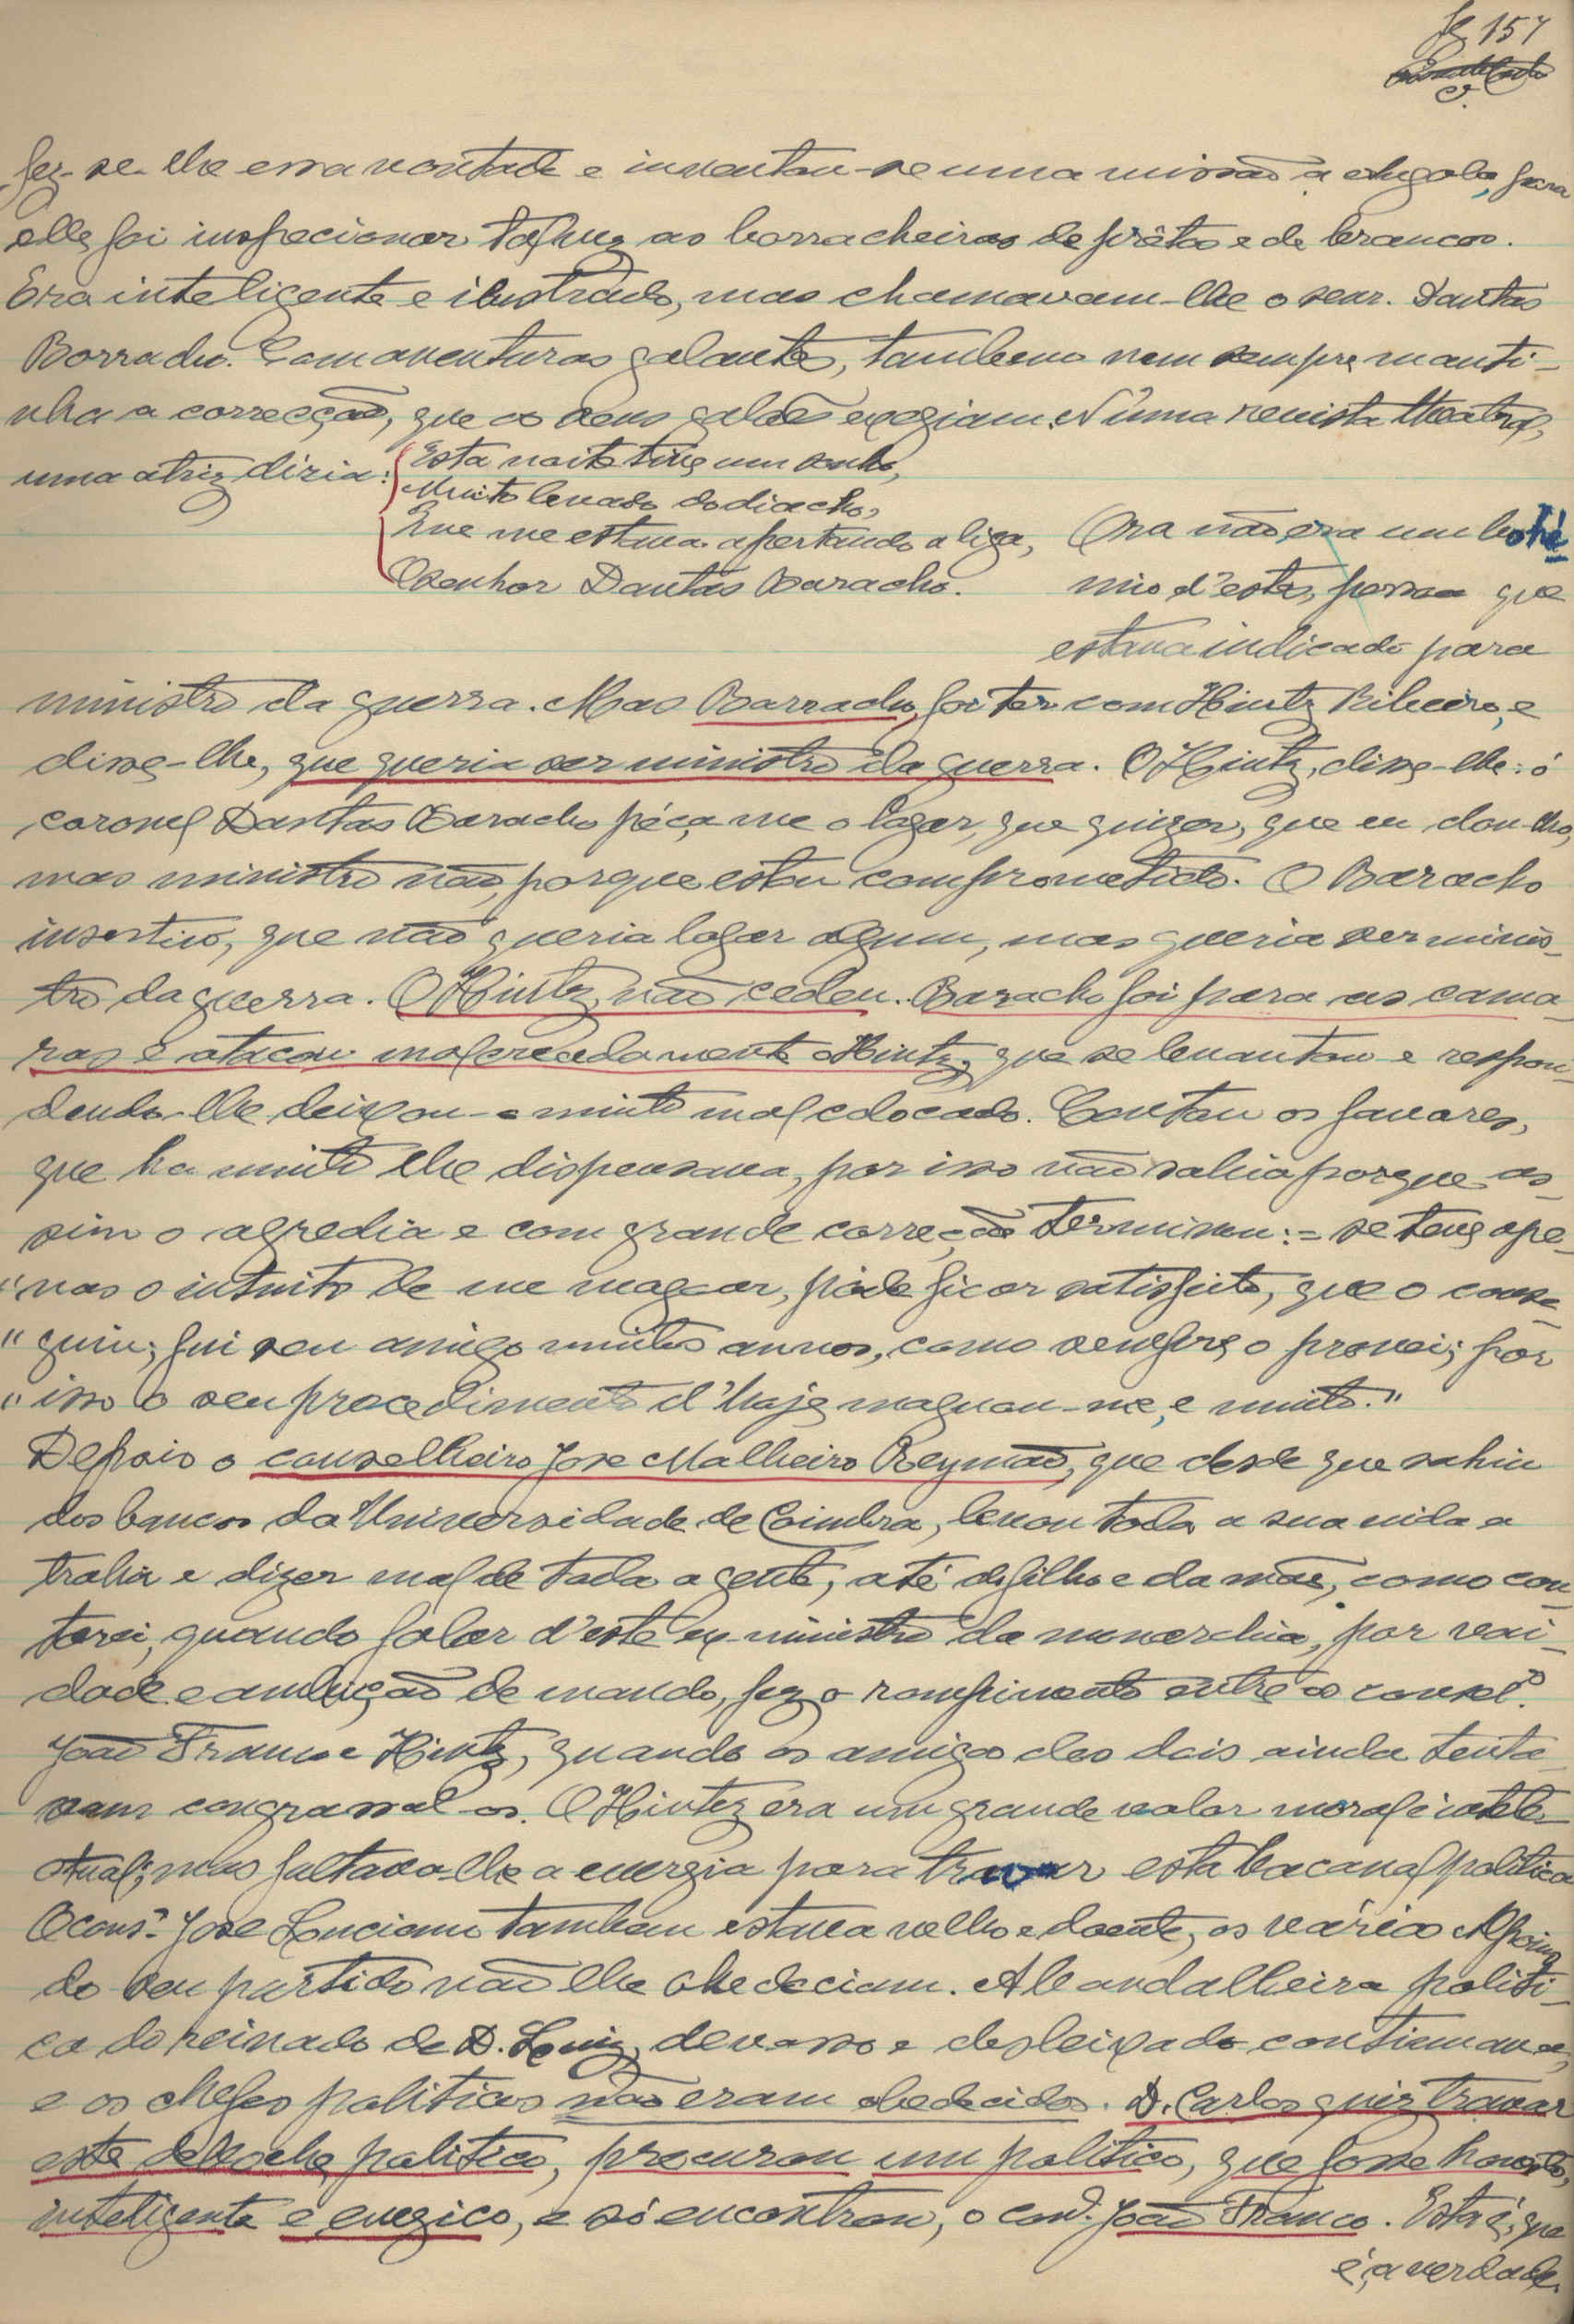 fl 157
fez-se-lhe essa vontade e inventou-se uma missão a Angola, para
elle foi inspecionar talvez as borracheiras de prêtos e de brancos.
Era inteligente e ilustrado, mas chamavam-lhe o senr. Dantas
Borracho. Com aventuras galantes, tambem nem sempre manti-
nha a correcção, que os seus galões exegiam. N'uma revista theatral,
uma atriz dizia:
Esta noite tive um sonho,
Muito levado do diacho,
Que me estava apertando a liga,
O senhor Dantas Baracho.
Ora não era um bohé-
mio d'estes, pessoa que
estava indicado para
ministro da guerra. Mas Barracho, foi ter com Hintz Ribeiro, e
disse-lhe, que queria ser ministro da guerra. O Hintz, disse-lhe: ó
coronel Dantas Baracho péça me o logar, que quizer, que eu dou-lho,
mas ministro não, porque estou comprometido. O Baracho
insestiu, que não queria logar algum, mas queria ser minis-
tro da guerra. O Hintz, não cedeu. Baracho foi para as cama-
ras e atacou malcreadamente o Hintz, que se levantou e respon-
dendo-lhe deixou-o muito mal colocado. Contou os favores,
que ha muito lhe dispensava, por isso não sabia porque as-
sim o agredia e com grande correcção terminou:= se teve ape-
"nas o intuito de me magoar, póde ficar satisfeito, que o conse-
"guiu; fui seu amigo muitos annos, como sempre o provei; por
"isso o seu procedimento d'hoje magoou-me, e muito."
Depois o conselheiro Jose Malheiro Reymão, que desde que sahiu
dos bancos da Universidade de Coimbra, levou toda a sua vida a
trahir e dizer mal de toda a gente, até do filho e da mãe, como con-
tarei, quando falar d'este ex-ministro da monarchia, por vai-
dade e ambição de mando, fez o rompimento entre os consel.º
João Franco e Hintz, quando os amigos dos dois ainda tenta-
vam congrassal-os. O Hintez era um grande valor moral e intele-
ctual; mas faltava-lhe a energia para travar esta bacanal politica
O cons.º Jose Luciano tambem estava velho e doente, os vários Alpoins
do seu partido não lhe obedeciam. A bandalheira politi-
ca do reinado de D. Luiz, devasso e desleixado continuava,
e os chefes politicos não eram obedecidos. D. Carlos quiz travar
este deboche politico, procurou um politico, que fosse honesto,
inteligente e enegico, e só encontrou, o cons.º João Franco. Esta é, que
é, a verdade.